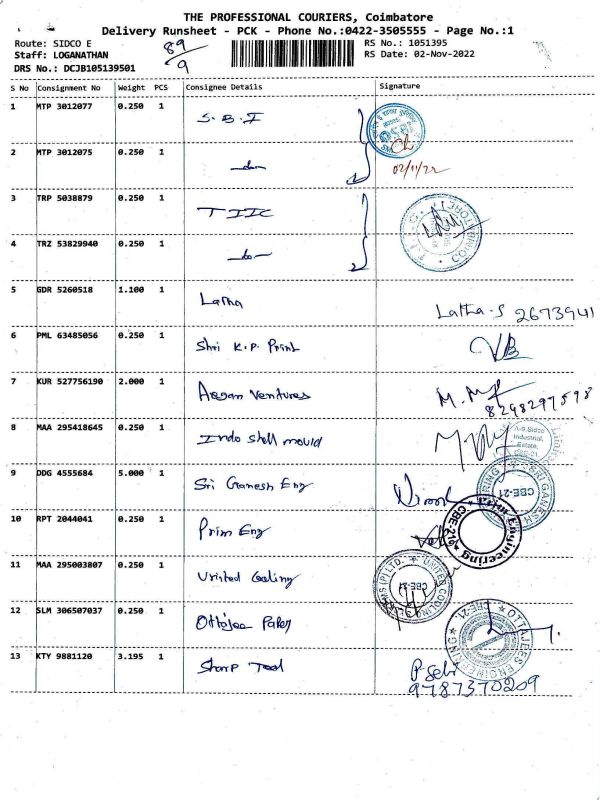 THE PROFESSIONAL COURIERS, Coimbatore
Delivery Runsheet - PCK - Phone No.:0422-3505555 - Page No.:1
Route: SIDCO E
Staff: LOGANATHAN
DRS No.: DCJB105139501
89/9
RS No.: 1051395
RS Date: 02-Nov-2022
S No Consignment No Weight PCS Consignee Details Signature
1 MTP 3012077 0.250 1 S.B.I
2 MTP 3012075 0.250 1 -do- 02/11/22
3 TRP 5038879 0.250 1 TIIC
4 TRZ 53829940 0.250 1 -do-
5 GDR 5260518 1.100 1 Latha Latha-S 2673941
6 PML 63485056 0.250 1 Shri K.P. Print
7 KUR 527756190 2.000 1 Ventures 8298297598
8 MAA 295418645 0.250 1 Indo shell mould
A-9, Sidco
Industrial,
Estate,
CBE-21
9 DDG 4555684 5.000 1 Sri Ganesh Eng
SRI GANESH
CBE-21
10 RPT 2044041 0.250 1 Prim Eng
Prim Engineering
CBE-21
11 MAA 295003807 0.250 1 United Cooling
UNITED COOLING
CBE-21
12 SLM 306507037 0.250 1 Ottajee
OTTAJEES ENGINEERING
CBE-21
13 KTY 9881120 3.195 1 Sharp Tool
9787370209